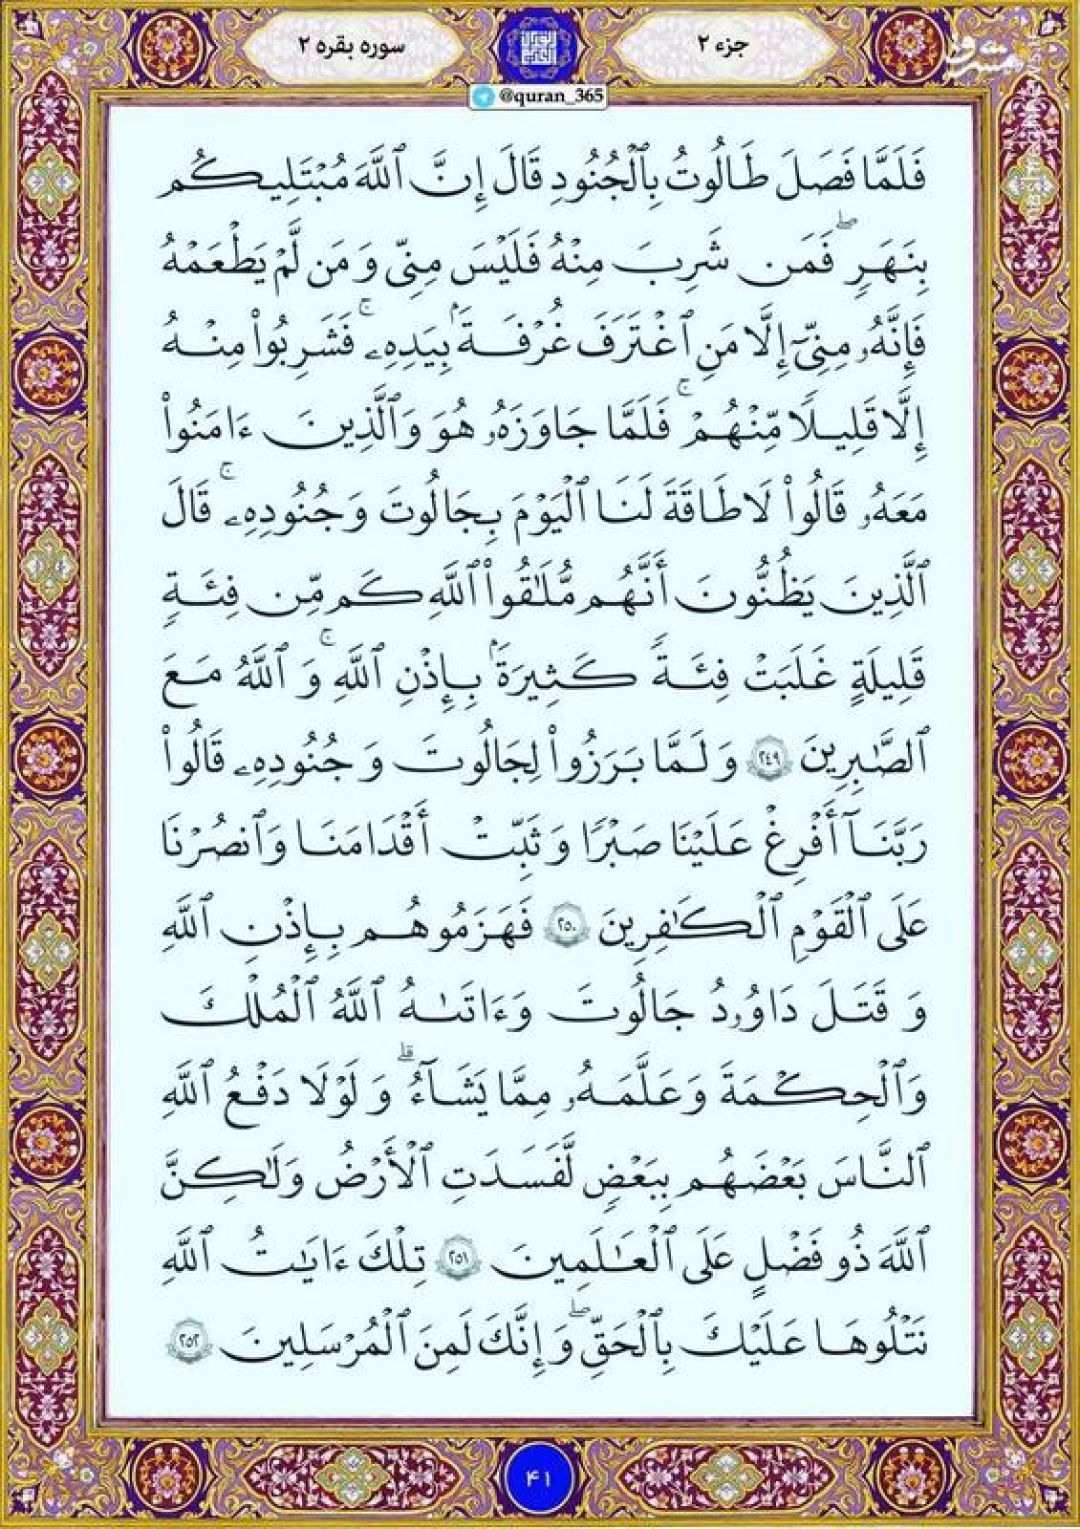 جزء ۲
سوره بقره ۲
@quran_365
مشرق
فَلَمَّا فَصَلَ طَالُوتُ بِٱلْجُنُودِ قَالَ إِنَّ ٱللَّهَ مُبْتَلِيكُم
بِنَهَرٍۢ ۖ فَمَن شَرِبَ مِنْهُ فَلَيْسَ مِنِّى وَمَن لَّمْ يَطْعَمْهُ
فَإِنَّهُۥ مِنِّىٓ إِلَّا مَنِ ٱغْتَرَفَ غُرْفَةًۢ بِيَدِهِۦ ۚ فَشَرِبُوا۟ مِنْهُ
إِلَّا قَلِيلًا مِّنْهُمْ ۚ فَلَمَّا جَاوَزَهُۥ هُوَ وَٱلَّذِينَ ءَامَنُوا۟
مَعَهُۥ قَالُوا۟ لَا طَاقَةَ لَنَا ٱلْيَوْمَ بِجَالُوتَ وَجُنُودِهِۦ ۚ قَالَ
ٱلَّذِينَ يَظُنُّونَ أَنَّهُم مُّلَٰقُوا۟ ٱللَّهِ كَم مِّن فِئَةٍ
قَلِيلَةٍ غَلَبَتْ فِئَةً كَثِيرَةًۢ بِإِذْنِ ٱللَّهِ ۚ وَٱللَّهُ مَعَ
ٱلصَّٰبِرِينَ ۲۴۹ وَلَمَّا بَرَزُوا۟ لِجَالُوتَ وَجُنُودِهِۦ قَالُوا۟
رَبَّنَآ أَفْرِغْ عَلَيْنَا صَبْرًا وَثَبِّتْ أَقْدَامَنَا وَٱنصُرْنَا
عَلَى ٱلْقَوْمِ ٱلْكَٰفِرِينَ ۲۵۰ فَهَزَمُوهُم بِإِذْنِ ٱللَّهِ
وَقَتَلَ دَاوُۥدُ جَالُوتَ وَءَاتَىٰهُ ٱللَّهُ ٱلْمُلْكَ
وَٱلْحِكْمَةَ وَعَلَّمَهُۥ مِمَّا يَشَآءُ ۗ وَلَوْلَا دَفْعُ ٱللَّهِ
ٱلنَّاسَ بَعْضَهُم بِبَعْضٍ لَّفَسَدَتِ ٱلْأَرْضُ وَلَٰكِنَّ
ٱللَّهَ ذُو فَضْلٍ عَلَى ٱلْعَٰلَمِينَ ۲۵۱ تِلْكَ ءَايَٰتُ ٱللَّهِ
نَتْلُوهَا عَلَيْكَ بِٱلْحَقِّ ۖ وَإِنَّكَ لَمِنَ ٱلْمُرْسَلِينَ ۲۵۲
۴۱